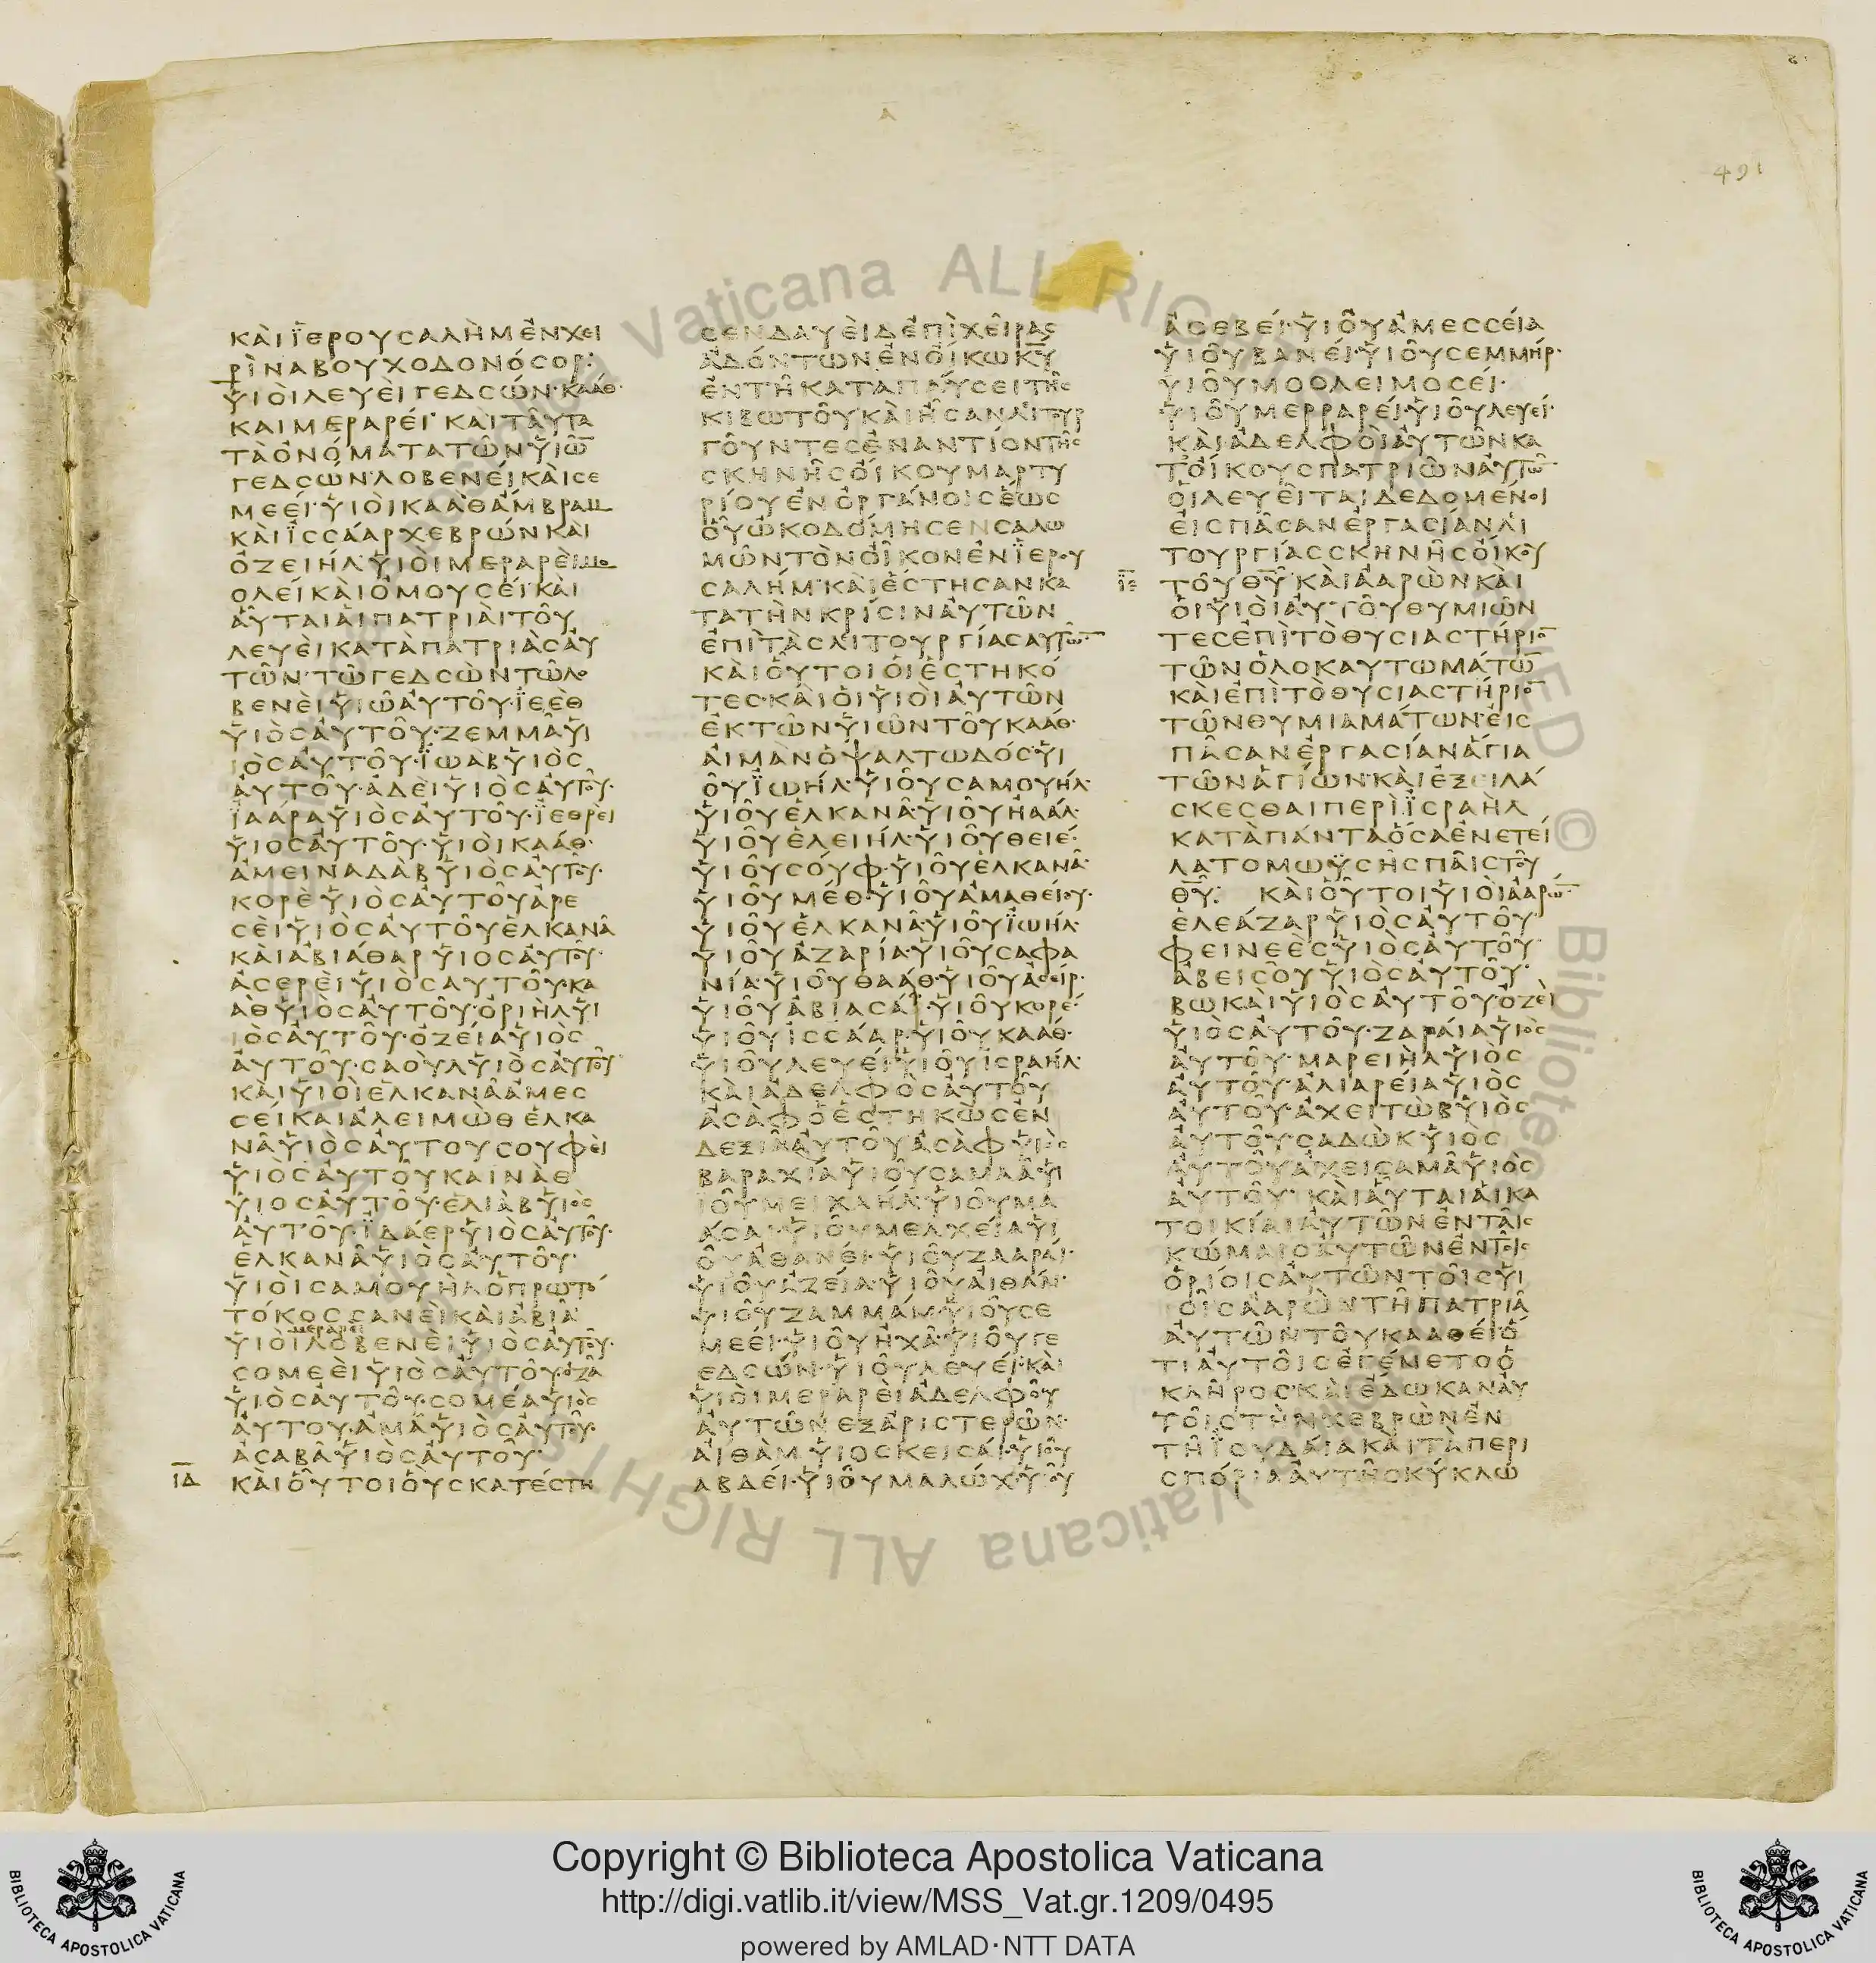 491
ΚΑΙΙΕΡΟΥΣΑΛΗΜΕΝΧΕΙ
ΡΙΝΑΒΟΥΧΟΔΟΝΟΣΟΡ:
ΥΙΟΙΛΕΥΕΙΓΕΔΣΩΝ·ΚΑΑΘ·
ΚΑΙΜΕΡΑΡΕΙ·ΚΑΙΤΑΥΤΑ
ΤΑΟΝΟΜΑΤΑΤΩΝΥΙΩ̅
ΓΕΔΣΩΝ·ΛΟΒΕΝΕΙΚΑΙΣΕ
ΜΕΕΙ·ΥΙΟΙΚΑΑΘΑΜΒΡΑΜ
ΚΑΙΙΣΣΑΑΡΧΕΒΡΩΝΚΑΙ
ΟΖΕΙΗΛ·ΥΙΟΙΜΕΡΑΡΕΙΜΟ
ΟΛΕΙΚΑΙΟΜΟΥΣΕΙ·ΚΑΙ
ΑΥΤΑΙΑΙΠΑΤΡΙΑΙΤΟΥ
ΛΕΥΕΙΚΑΤΑΠΑΤΡΙΑΣΑΥ
ΤΩΝ·ΤΩΓΕΔΣΩΝΤΩΛΟ
ΒΕΝΕΙΥΙΩΑΥΤΟΥ·ΙΕΕΘ
ΥΙΟΣΑΥΤΟΥ·ΖΕΜΜΑΥΙ
ΙΟΣΑΥΤΟΥ·ΙΩΑΒΥΙΟΣ
ΑΥΤΟΥ·ΑΔΕΙΥΙΟΣΑΥΤΟΥ·
ΙΑΑΡΑΥΙΟΣΑΥΤΟΥ·ΙΕΘΡΕΙ
ΥΙΟΣΑΥΤΟΥ·ΥΙΟΙΚΑΑΘ·
ΑΜΕΙΝΑΔΑΒΥΙΟΣΑΥΤΟΥ·
ΚΟΡΕΥΙΟΣΑΥΤΟΥΑΡΕ
ΣΕΙΥΙΟΣΑΥΤΟΥΕΛΚΑΝΑ
ΚΑΙΑΒΙΑΘΑΡΥΙΟΣΑΥΤΟΥ·
ΑΣΕΡΕΙΥΙΟΣΑΥΤΟΥ·ΚΑ
ΑΘΥΙΟΣΑΥΤΟΥ·ΟΡΙΗΛΥΙ
ΙΟΣΑΥΤΟΥ·ΟΖΕΙΑΥΙΟΣ
ΑΥΤΟΥ·ΣΑΟΥΛΥΙΟΣΑΥΤΟΥ
ΚΑΙΥΙΟΙΕΛΚΑΝΑΑΜΕΣ
ΣΕΙΚΑΙΑΛΕΙΜΩΘΕΛΚΑ
ΝΑΥΙΟΣΑΥΤΟΥΣΟΥΦΕΙ
ΥΙΟΣΑΥΤΟΥΚΑΙΝΑΕ
ΥΙΟΣΑΥΤΟΥ·ΕΛΙΑΒΥΙΟΣ
ΑΥΤΟΥ·ΙΔΑΕΡΥΙΟΣΑΥΤΟΥ·
ΕΛΚΑΝΑΥΙΟΣΑΥΤΟΥ·
ΥΙΟΙΣΑΜΟΥΗΛΟΠΡΩΤΟ
ΤΟΚΟΣΣΑΝΕΙΚΑΙΑΒΙΑ·
μεραρει
ΥΙΟΙΛΟΒΕΝΕΙΥΙΟΣΑΥΤΟΥ·
ΣΟΜΕΕΙΥΙΟΣΑΥΤΟΥ·ΟΖΑ
ΥΙΟΣΑΥΤΟΥ·ΣΟΜΕΑΥΙΟΣ
ΑΥΤΟΥ·ΑΜΑΥΙΟΣΑΥΤΟΥ·
ΑΣΑΒΑΥΙΟΣΑΥΤΟΥ·
ΙΔ ΚΑΙΟΥΤΟΙΟΥΣΚΑΤΕΣΤΗ
ΣΕΝΔΑΥΕΙΔΕΠΙΧΕΙΡΑΣ
ΑΔΟΝΤΩΝΕΝΟΙΚΩΚ̅Υ̅
ΕΝΤΗΚΑΤΑΠΑΥΣΕΙΤΗΣ
ΚΙΒΩΤΟΥΚΑΙΗΣΑΝΛΙΤΟΥΡ
ΓΟΥΝΤΕΣΕΝΑΝΤΙΟΝΤΗΣ
ΣΚΗΝΗΣΟΙΚΟΥΜΑΡΤΥ
ΡΙΟΥΕΝΟΡΓΑΝΟΙΣΕΩΣ
ΟΥΩΚΟΔΟΜΗΣΕΝΣΑΛΩ
ΜΩΝΤΟΝΟΙΚΟΝΕΝΙΕΡΟΥ
ΣΑΛΗΜ·ΚΑΙΕΣΤΗΣΑΝΚΑ
ΤΑΤΗΝΚΡΙΣΙΝΑΥΤΩΝ
ΕΠΙΤΑΣΛΙΤΟΥΡΓΙΑΣΑΥΤΩ̅
ΚΑΙΟΥΤΟΙΟΙΕΣΤΗΚΟ
ΤΕΣ·ΚΑΙΟΙΥΙΟΙΑΥΤΩΝ
ΕΚΤΩΝΥΙΩΝΤΟΥΚΑΑΘ·
ΑΙΜΑΝΟΨΑΛΤΩΔΟΣ·ΥΙ
ΟΥΙΩΗΛ·ΥΙΟΥΣΑΜΟΥΗΛ·
ΥΙΟΥΕΛΚΑΝΑ·ΥΙΟΥΗΑΑΛ·
ΥΙΟΥΕΛΕΙΗΛ·ΥΙΟΥΘΕΙΕ·
ΥΙΟΥΣΟΥΦ·ΥΙΟΥΕΛΚΑΝΑ·
ΥΙΟΥΜΕΘ·ΥΙΟΥΑΜΑΘΕΙΟΥ·
ΥΙΟΥΕΛΚΑΝΑ·ΥΙΟΥΙΩΗΛ·
ΥΙΟΥΑΖΑΡΙΑ·ΥΙΟΥΣΑΦΑ
ΝΙΑ·ΥΙΟΥΘΑΑΘ·ΥΙΟΥΑΣΕΙΡ·
ΥΙΟΥΑΒΙΑΣΑΡ·ΥΙΟΥΚΟΡΕ·
ΥΙΟΥΙΣΣΑΑΡ·ΥΙΟΥΚΑΑΘ·
ΥΙΟΥΛΕΥΕΙ·ΥΙΟΥΙΣΡΑΗΛ·
ΚΑΙΑΔΕΛΦΟΣΑΥΤΟΥ
ΑΣΑΦΟΕΣΤΗΚΩΣΕΝ
ΔΕΞΙΑΑΥΤΟΥΑΣΑΦΥΙΟΣ
ΒΑΡΑΧΙΑΥΙΟΥΣΑΜΑΑΥΙ
ΙΟΥΜΕΙΧΑΗΛ·ΥΙΟΥΜΑ
ΑΣΑΙ·ΥΙΟΥΜΕΛΧΕΙΑΥΙ
ΟΥΑΘΑΝΕΙ·ΥΙΟΥΖΑΑΡΑΙ·
ΥΙΟΥΑΖΕΙΑ·ΥΙΟΥΑΙΘΑΝ·
ΥΙΟΥΖΑΜΜΑΜ·ΥΙΟΥΣΕ
ΜΕΕΙ·ΥΙΟΥΗΧΑ·ΥΙΟΥΓΕ
ΕΔΣΩΝ·ΥΙΟΥΛΕΥΕΙ·ΚΑΙ
ΥΙΟΙΜΕΡΑΡΕΙΑΔΕΛΦΟΥ
ΑΥΤΩΝΕΞΑΡΙΣΤΕΡΩΝ·
ΑΙΘΑΜΥΙΟΣΚΕΙΣΑΙ·ΥΙΟΥ
ΑΒΔΕΙ·ΥΙΟΥΜΑΛΩΧ·ΥΙΟΥ
ΑΣΕΒΕΙ·ΥΙΟΥΑΜΕΣΣΕΙΑ
ΥΙΟΥΒΑΝΕΙ·ΥΙΟΥΣΕΜΜΗΡ·
ΥΙΟΥΜΟΟΛΕΙΜΟΣΕΙ·
ΥΙΟΥΜΕΡΡΑΡΕΙ·ΥΙΟΥΛΕΥΕΙ·
ΚΑΙΑΔΕΛΦΟΙΑΥΤΩΝΚΑ
ΤΟΙΚΟΥΣΠΑΤΡΙΩΝΑΥΤΩ̅
ΟΙΛΕΥΕΙΤΑΙΔΕΔΟΜΕΝΟΙ
ΕΙΣΠΑΣΑΝΕΡΓΑΣΙΑΝΛΙ
ΤΟΥΡΓΙΑΣΣΚΗΝΗΣΟΙΚΟΥ
ΙΕ ΤΟΥΘ̅Υ̅·ΚΑΙΑΑΡΩΝΚΑΙ
ΟΙΥΙΟΙΑΥΤΟΥΘΥΜΙΩΝ
ΤΕΣΕΠΙΤΟΘΥΣΙΑΣΤΗΡΙΟ̅
ΤΩΝΟΛΟΚΑΥΤΩΜΑΤΩ̅
ΚΑΙΕΠΙΤΟΘΥΣΙΑΣΤΗΡΙΟ̅
ΤΩΝΘΥΜΙΑΜΑΤΩΝ·ΕΙΣ
ΠΑΣΑΝΕΡΓΑΣΙΑΝΑΓΙΑ
ΤΩΝΑΓΙΩΝ·ΚΑΙΕΞΕΙΛΑ
ΣΚΕΣΘΑΙΠΕΡΙΙΣΡΑΗΛ
ΚΑΤΑΠΑΝΤΑΟΣΑΕΝΕΤΕΙ
ΛΑΤΟΜΩΥΣΗΣΠΑΙΣΤΟΥ
Θ̅Υ̅: ΚΑΙΟΥΤΟΙΥΙΟΙΑΑΡΩ̅·
ΕΛΕΑΖΑΡΥΙΟΣΑΥΤΟΥ·
ΦΕΙΝΕΕΣΥΙΟΣΑΥΤΟΥ·
ΑΒΕΙΣΟΥΥΙΟΣΑΥΤΟΥ·
ΒΩΚΑΙΥΙΟΣΑΥΤΟΥ·ΟΖΕΙ
ΥΙΟΣΑΥΤΟΥ·ΖΑΡΑΙΑΥΙΟΣ
ΑΥΤΟΥ·ΜΑΡΕΙΗΛΥΙΟΣ
ΑΥΤΟΥ·ΑΛΙΑΡΕΙΑΥΙΟΣ
ΑΥΤΟΥ·ΑΧΕΙΤΩΒΥΙΟΣ
ΑΥΤΟΥ·ΣΑΔΩΚΥΙΟΣ
ΑΥΤΟΥΑΧΕΙΣΑΜΑΥΙΟΣ
ΑΥΤΟΥ·ΚΑΙΑΥΤΑΙΑΙΚΑ
ΤΟΙΚΙΑΙΑΥΤΩΝΕΝΤΑΙΣ
ΚΩΜΑΙΣΑΥΤΩΝΕΝΤΟΙΣ
ΟΡΙΟΙΣΑΥΤΩΝΤΟΙΣΥΙ
ΙΟΙΣΑΑΡΩΝΤΗΠΑΤΡΙΑ
ΑΥΤΩΝΤΟΥΚΑΑΘΕΙ·Ο
ΤΙΑΥΤΟΙΣΕΓΕΝΕΤΟΟ
ΚΛΗΡΟΣ·ΚΑΙΕΔΩΚΑΝΑΥ
ΤΟΙΣΤΗΝΧΕΒΡΩΝΕΝ
ΤΗΙΟΥΔΑΙΑΚΑΙΤΑΠΕΡΙ
ΣΠΟΡΙΑΑΥΤΗΣΚΥΚΛΩ
Copyright © Biblioteca Apostolica Vaticana
http://digi.vatlib.it/view/MSS_Vat.gr.1209/0495
powered by AMLAD·NTT DATA
BIBLIOTECA APOSTOLICA VATICANA
BIBLIOTECA APOSTOLICA VATICANA